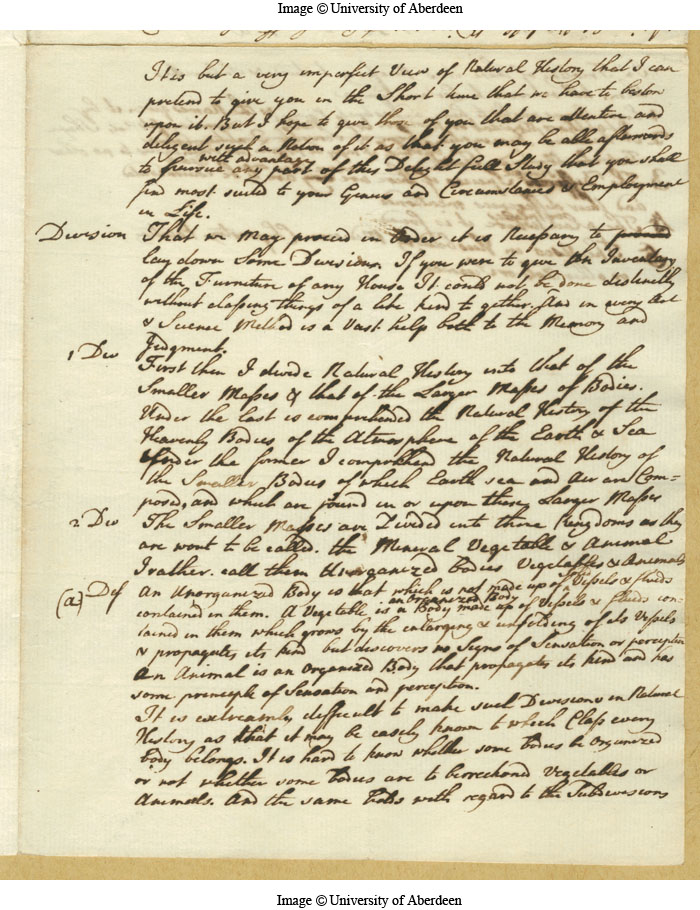 Image © University of Aberdeen
It is but a very imperfect View of Natural History that I can
pretend to give you in the Short time that we have to bestow
upon it. But I hope to give those of you that are attentive and
diligent such a Notion of it as that you may be able afterwards
with advantage
to pursue any part of this Delightfull Study that you shall
find most suited to your Genius and Circumstances & Employment
in Life.
Division That we may proceed in order it is Necessary to proceed
lay down Some Divisions. If you were to give an Inventary
of the Furniture of any House It could not be done distinctly
without classing things of a like kind together. And in every Art
& Science Method is a vast help both to the Memory and
Judgment.
1 Div First then I divide Natural History into that of the
Smaller Masses & that of the Larger Masses of Bodies.
Under the last is comprehended the Natural History of the
Heavenly Bodies of the Atmosphere of the Earth & Sea
Under the former I comprehend the Natural History of
the Smaller Bodies of which Earth sea and Air are Com=
posed, and which are found in or upon these Larger Masses
2 Div The Smaller Masses are Divided into three Kingdoms as they
are wont to be called. the Mineral Vegetable & Animal
I rather call them Unorganized bodies Vegetables & Animals
(a) Def An Unorganized Body is that which is not made up of Vessels & fluids
an Organized Body
contained in them. A Vegetable is a Body made up of Vessels & fluids con
tained in them which grows by the enlarging & unfolding of its Vessels
& propagates its kind but discovers no Signs of Sensation or perception
An Animal is an Organized Body that propagates its kind and has
some principle of Sensation and perception.
It is extreamly difficult to make such Divisions in Natural
History as that it may be easily known to which Class every
body belongs. It is hard to know whether some bodies be Organized
or not whether some bodies are to be reckoned Vegetables or
Animals. And the same holds with regard to the Subdivisions
Image © University of Aberdeen